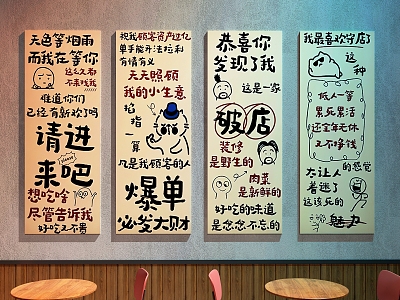 天色等烟雨
而我在等你
这么久都
不来找我
谁道你们
已经有新欢了吗
请进
来吧
想吃啥
尽管告诉我
好吃又不贵
祝我顾客资产过亿
单手能开法拉利
有情有义
天天照顾
我的小生意
掐指
一算
凡是我顾客的人
爆单
必发大财
恭喜你
发现了我
这是一家
破店
装修
是野生的
肉菜
是新鲜的
好吃的味道
是念念不忘的
我最喜欢守店了
这
种
低人一等
累死累活
还全年无休
又不挣钱
的感觉
太让人
着迷了
这该死的
魅力